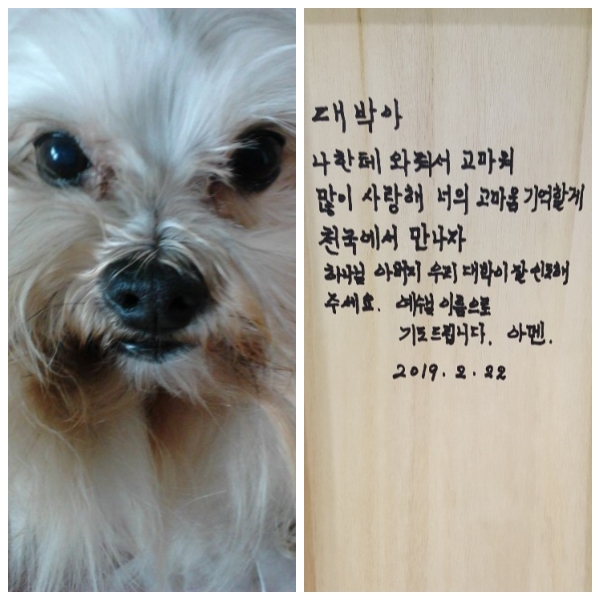 대박아
나한테 와줘서 고마워
많이 사랑해 너의 고마움 기억할게
천국에서 만나자
하나님 아버지 우리 대박이 잘 인도해
주세요. 예수님 이름으로
기도드립니다. 아멘.
2019. 2. 22